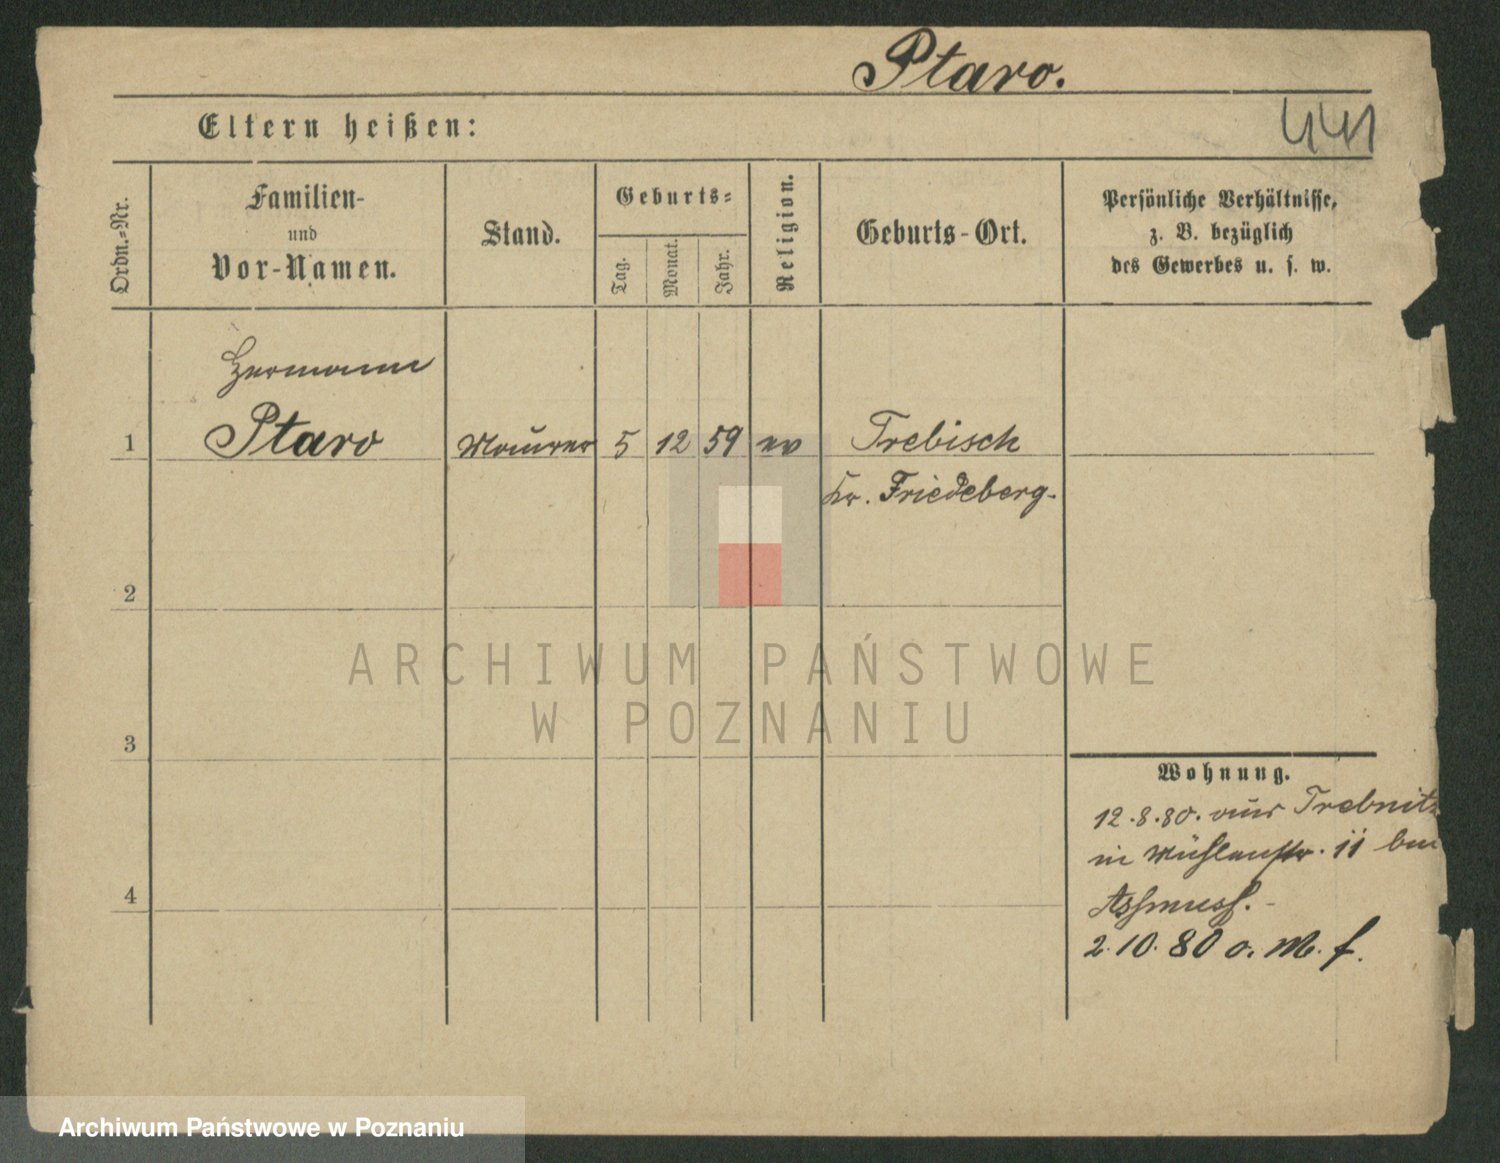 Ptaro.
441
Eltern heißen:
Ordn.-Nr.
Familien-
und
Vor-Namen.
Stand.
Geburts-
Tag.
Monat.
Jahr.
Religion.
Geburts-Ort.
Persönliche Verhältnisse,
z. B. bezüglich
des Gewerbes u. s. w.
Hermann
1 Ptaro Maurer 5 12 59 ev Trebisch
Kr. Friedeberg-
2
3
4
Wohnung.
12.8.80. aus Trebnitz
in Mühlenstr. 11 bei
Assmuss.-
2.10.80 o. M. f.
ARCHIWUM PAŃSTWOWE
W POZNANIU
Archiwum Państwowe w Poznaniu